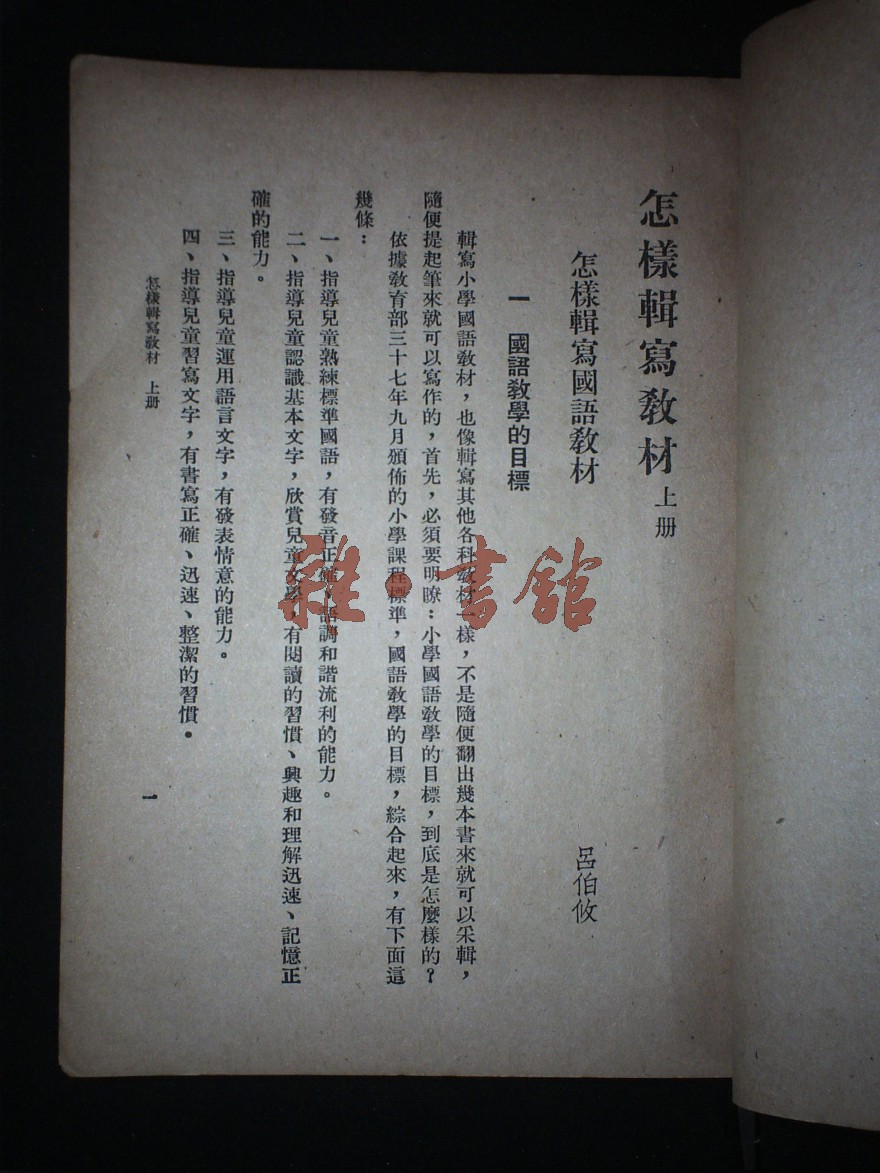 怎樣輯寫敎材 上册
怎樣輯寫國語敎材
呂伯攸
一 國語敎學的目標
輯寫小學國語敎材，也像輯寫其他各科敎材一樣，不是隨便翻出幾本書來就可以采輯，
隨便提起筆來就可以寫作的，首先，必須要明瞭：小學國語敎學的目標，到底是怎麼樣的？
依據敎育部三十七年九月頒佈的小學課程標準，國語敎學的目標，綜合起來，有下面這
幾條：
一、指導兒童熟練標準國語，有發音正確、語調和諧流利的能力。
二、指導兒童認識基本文字，欣賞兒童文學，有閱讀的習慣、興趣和理解迅速、記憶正
確的能力。
三、指導兒童運用語言文字，有發表情意的能力。
四、指導兒童習寫文字，有書寫正確、迅速、整潔的習慣。
怎樣輯寫敎材 上册
一
雜·書館